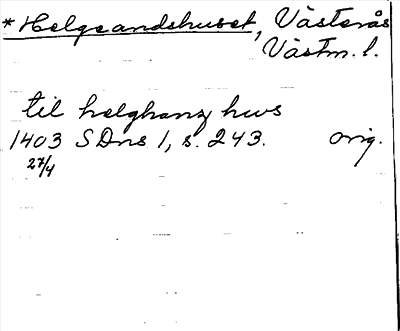 *Helgeandshuset, Västerås
Västm. l.
til helghanz hws
1403 SDns 1, s. 243. orig.
27/4